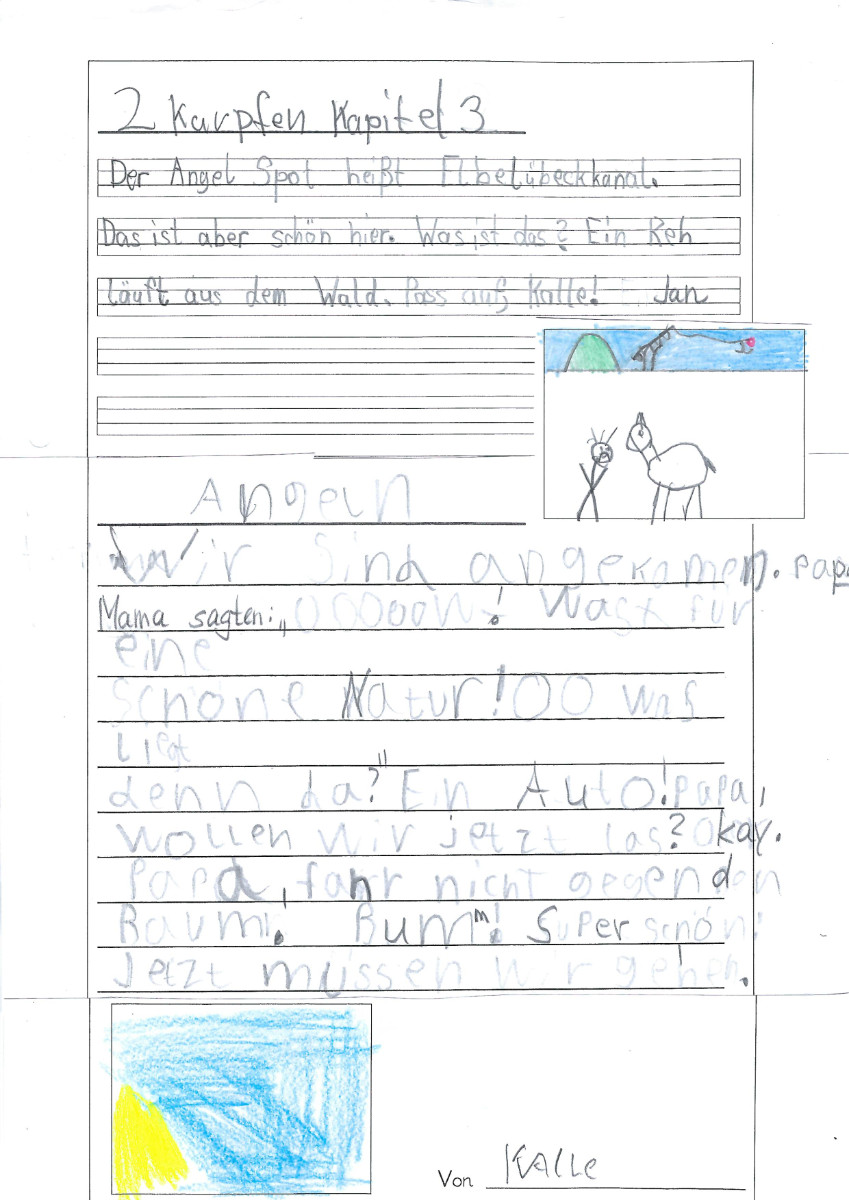 2 Karpfen Kapitel 3
Der Angel Spot heißt Elbelübeckkanal.
Das ist aber schön hier. Was ist das? Ein Reh
läuft aus dem Wald. Pass auf, Kalle! Jan
Angeln
Wir Sind angekomen. Papa
Mama sagten: „OOOOOH! Wast für
eine
schöne Natur! OO was
liegt
denn da?" Ein Auto! Papa,
wollen wir jetzt las? Okay.
Papa, fahr nicht gegen den
Baum! Bumm! Super schön!
Jetzt müssen wir gehen.
Von Kalle